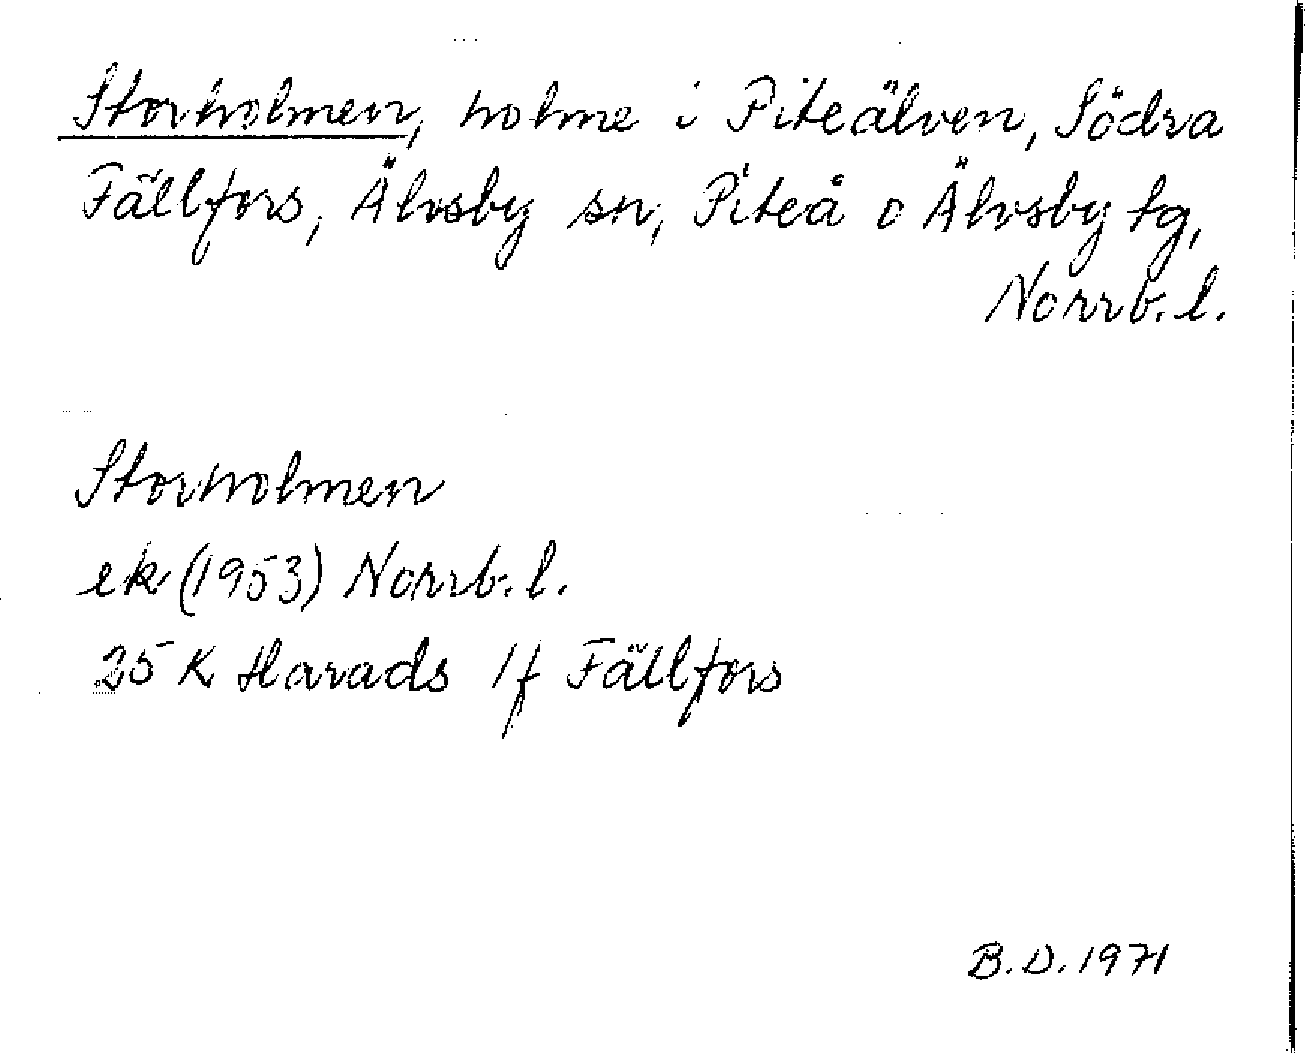 Storholmen, holme i Piteälven, Södra
Fällfors, Älvsby sn, Piteå o Älvsby tg,
Norrb. l.
Storholmen
ek (1953) Norrb. l.
25 K Harads 1 f Fällfors
B.D. 1971